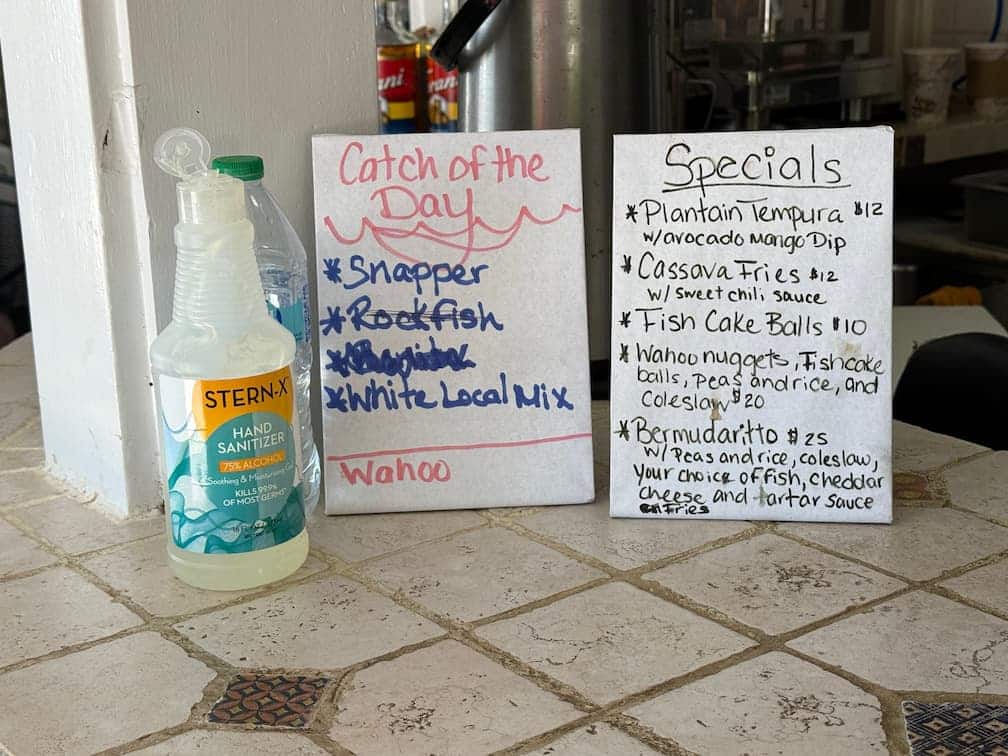 ani
rani
STERN-X
HAND
SANITIZER
75% ALCOHOL
Soothing & Moisturizing Gel
KILLS 99.9%
OF MOST GERMS*
Catch of the
Day
*Snapper
*Rockfish
*White Local Mix
Wahoo
Specials
*Plantain Tempura $12
w/avocado Mango Dip
*Cassava Fries $12
w/ sweet chili sauce
*Fish Cake Balls $10
*Wahoo nuggets, Fishcake
balls, peas and rice, and
Coleslaw $20
*Bermudaritto $25
w/ Peas and rice, coleslaw,
your choice of fish, cheddar
cheese and tartar sauce
Fries